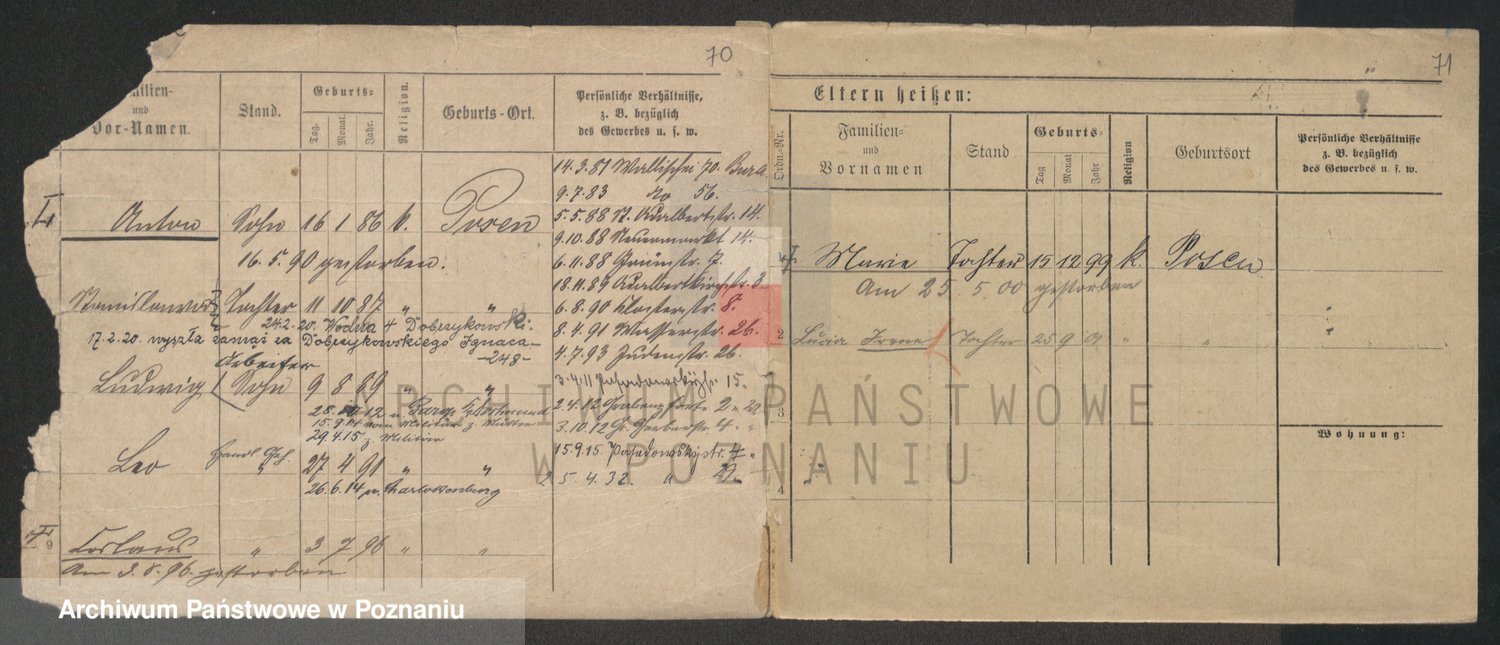 70
Familien-
und
Vor-Namen.
Stand.
Geburts-
Tag.
Monat.
Jahr.
Religion.
Geburts-Ort.
Persönliche Verhältnisse,
z. B. bezüglich
des Gewerbes u. s. w.
Anton Sohn 16 1 86 k. Posen
16. 5. 90 gestorben.
Tochter 11 10 87 " "
24.2.20. Wodna 4 Dobrzykowski.
17.2.20. wyszła zamąż za Dobrzykowskiego Ignaca
-248-
Arbeiter
Ludwig Sohn 9 8 89 " "
29.4.15 z. Militär
Leo Handl. Geh. " 27 4 91 " "
26.6.14 n. Charlottenburg
9 " 3 7 96 " "
Am 3.8.96. gestorben
14.3.81 Wallischei 70.
9.7.83 do 56.
5.5.88 St. Adalbertstr. 14.
9.10.88 Neuermarkt 14.
6.11.88 Grünstr. 7.
18.11.89 Adalbertkirchstr. 3.
6.8.90 Klosterstr. 8.
8.4.91 Wasserstr. 26.
4.7.93 Judenstr. 26.
3.4.11 15.
2.4.12 2
3.10.12 Gr. Gerberstr. 4
15.9.15. Posadowskystr. 4
5.4.32.
71
Eltern heißen:
Ordn.-Nr.
Familien-
und
Vornamen
Stand
Geburts-
Tag
Monat
Jahr
Religion
Geburtsort
Persönliche Verhältnisse
z. B. bezüglich
des Gewerbes u. s. w.
Marie Tochter 15 12 99 k. Posen
Am 25. 5. 00 gestorben
2 Lucia Irene Tochter 25 9 01 " "
3
Wohnung:
4
ARCHIWUM PAŃSTWOWE
W POZNANIU
Archiwum Państwowe w Poznaniu